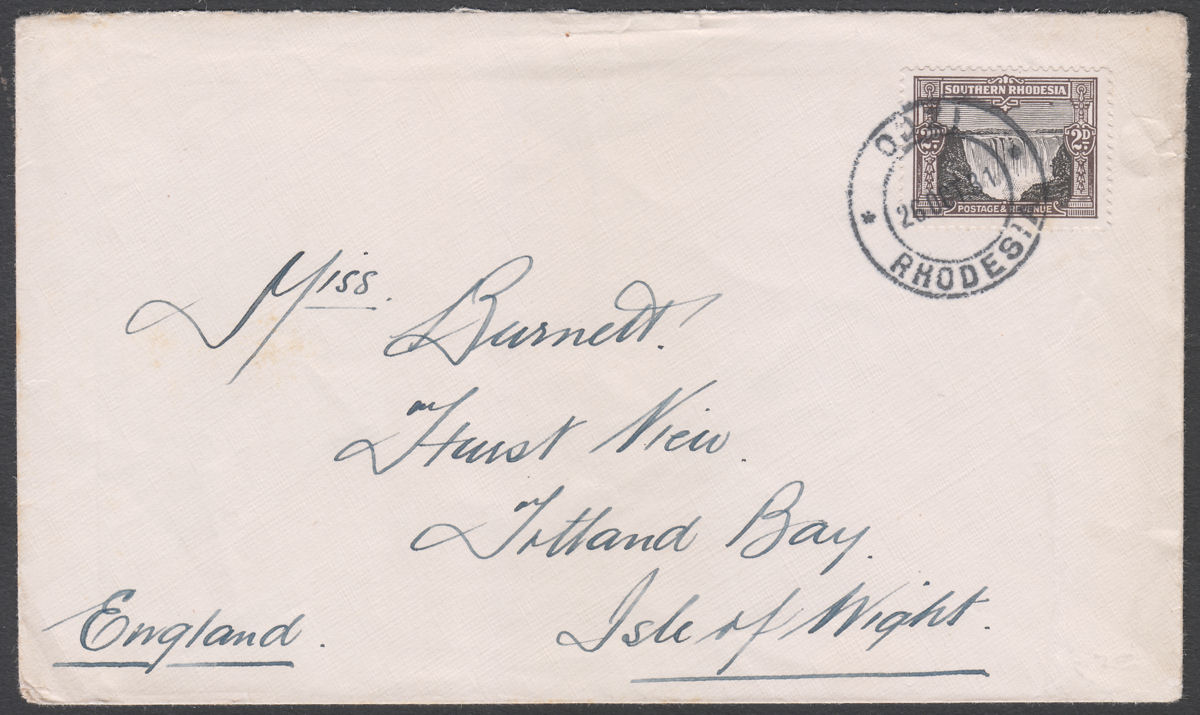 SOUTHERN RHODESIA
2D 2D
POSTAGE & REVENUE
ODZI
26 OCT 31
RHODESIA
Miss.
Burnett.
Hurst View.
Totland Bay.
Isle of Wight.
England.